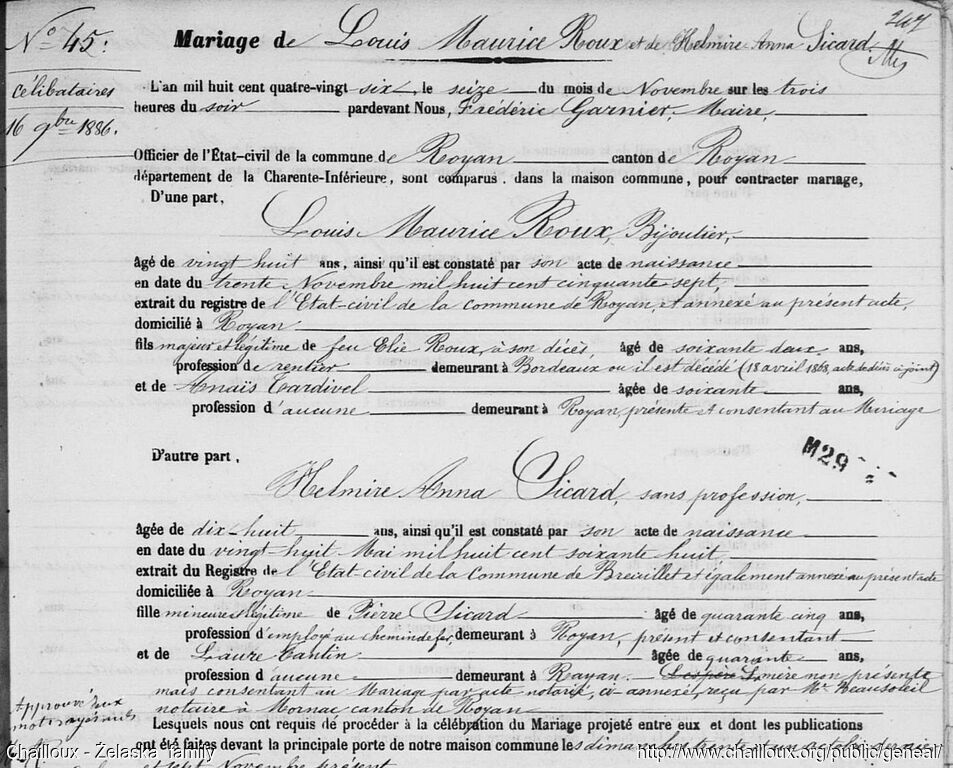 247
N° 45.
Mariage de Louis Maurice Roux et de Helmire Anna Sicard
célibataires
16 9bre 1886.
L'an mil huit cent quatre-vingt six, le seize du mois de Novembre sur les trois
heures du soir pardevant Nous, Frédéric Garnier, Maire,
Officier de l'État-civil de la commune de Royan canton de Royan
département de la Charente-Inférieure, sont comparus, dans la maison commune, pour contracter mariage,
D'une part,
Louis Maurice Roux, Bijoutier,
âgé de vingt huit ans, ainsi qu'il est constaté par son acte de naissance
en date du trente Novembre mil huit cent cinquante sept,
extrait du registre de l'Etat-civil de la commune de Royan, et annexé au présent acte,
domicilié à Royan
fils majeur et légitime de feu Elie Roux, à son décès, âgé de soixante deux ans,
profession de rentier demeurant à Bordeaux ou il est décédé (18 avril 1868, acte de décès ci joint)
et de Anaïs Tardivel âgée de soixante ans,
profession d'aucune demeurant à Royan, présente et consentant au Mariage
D'autre part,
M29
Helmire Anna Sicard, sans profession,
âgée de dix-huit ans, ainsi qu'il est constaté par son acte de naissance
en date du vingt-huit Mai mil huit cent soixante huit
extrait du Registre de l'Etat-civil de la Commune de Breuillet et également annexé au présent acte
domiciliée à Royan
fille mineure et légitime de Pierre Sicard âgé de quarante cinq ans,
profession d'employé au chemin de fer, demeurant à Royan, présent et consentant
et de Laure Tantin âgée de quarante ans,
profession d'aucune demeurant à Royan. mère non présente
mais consentant au Mariage par acte notarié, ci-annexé, reçu par Me Beausoleil
notaire à Mornac canton de Royan
Approuvé deux
mots rayés nuls
Lesquels nous ont requis de procéder à la célébration du Mariage projeté entre eux et dont les publications
ont été faites devant la principale porte de notre maison commune les dimanches trente et un octobre dernier
et sept Novembre présent
Chailloux - Żelaska family
http://www.chailloux.org/public/geneal/